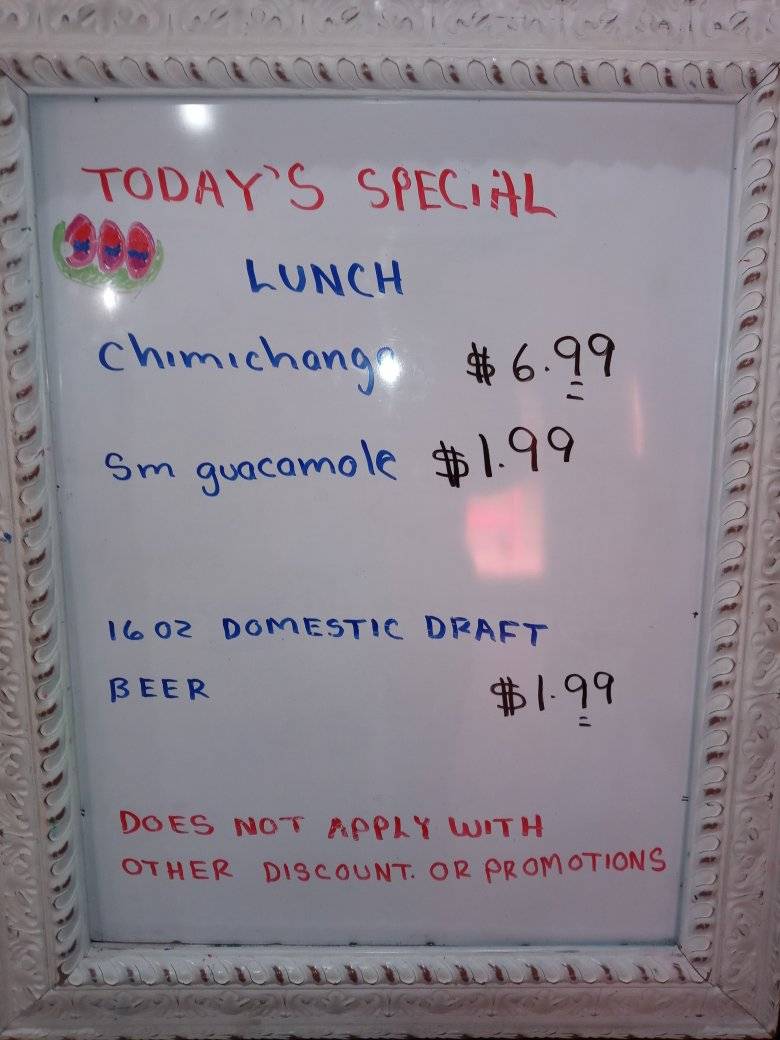 TODAY'S SPECIAL
LUNCH
Chimichanga $6.99
Sm guacamole $1.99
16 OZ DOMESTIC DRAFT
BEER $1.99
DOES NOT APPLY WITH
OTHER DISCOUNT. OR PROMOTIONS